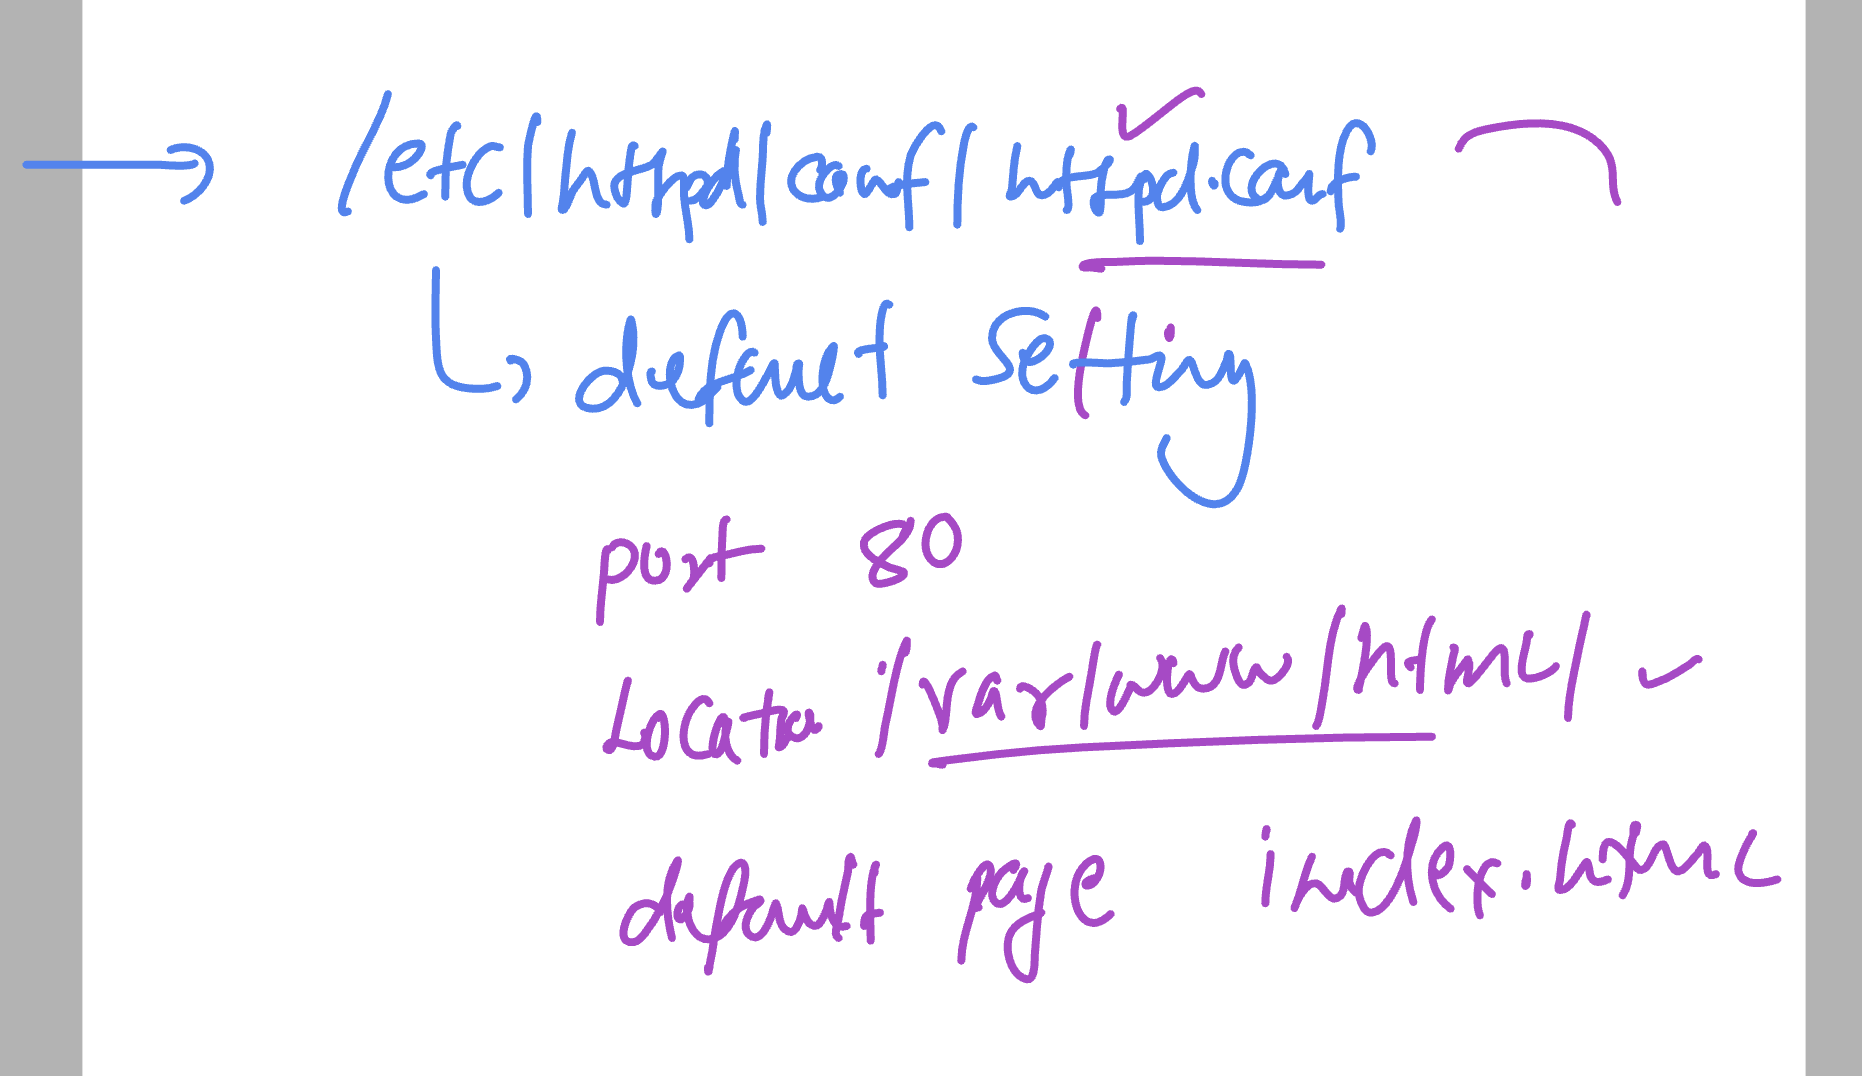 /etc/httpd/conf/httpd.conf
default setting
port 80
Location /var/www/html/
default page index.html